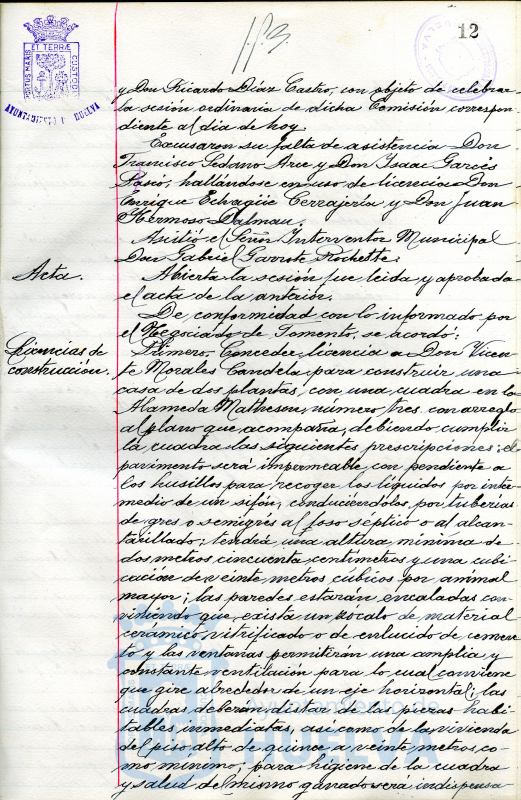 12
PORTUS MARIS ET TERRÆ CUSTODIA
AYUNTAMIENTO DE HUELVA
y Don Ricardo Díaz Castro, con objeto de celebrar
la sesión ordinaria de dicha Comisión correspon-
diente al día de hoy.
Excusaron su falta de asistencia Don
Francisco Sedano Arce y Don Isaac Garcés
hallándose en uso de licencia Don
Enrique Echvagüe Cerrajería y Don Juan
Hermoso Dalmau.
Asistió el Señor Interventor Municipal
Don Gabriel Garrote Rochette.
Acta.
Abierta la sesión fue leida y aprobada
el acta de la anterior.
De conformidad con lo informado por
el Negociado de Fomento, se acordó:
Licencias de
construcción.
Primero. Conceder licencia a Don Vicen-
te Morales Candela para construir una
casa de dos plantas, con una cuadra en la
Alameda Matheson, número tres, con arreglo
al plano que acompaña, debiendo cumplir
la cuadra las siguientes prescripciones: el
pavimento será impermeable con pendiente a
los husillos para recoger los líquidos por inter-
medio de un sifón, conduciéndolos por tuberías
de gres o semigrés al foso séptico o al alcan-
tarillado; tendrá una altura mínima de
dos metros cincuenta centímetros y una cubi-
cación de veinte metros cúbicos por animal
mayor; las paredes estarán encaladas con-
viniendo que exista un zócalo de material
cerámico vitrificado o de enlucido de cemen-
to y las ventanas permitirán una amplia y
constante ventilación para lo cual conviene
que gire alrededor de un eje horizontal; las
cuadras deberán distar de las piezas habi-
tables inmediatas, así como de la vivienda
del piso alto de quince a veinte metros, co-
mo mínimo; para higiene de la cuadra
y salud del mismo ganado será indispensa-
Ayuntamiento de
HUELVA